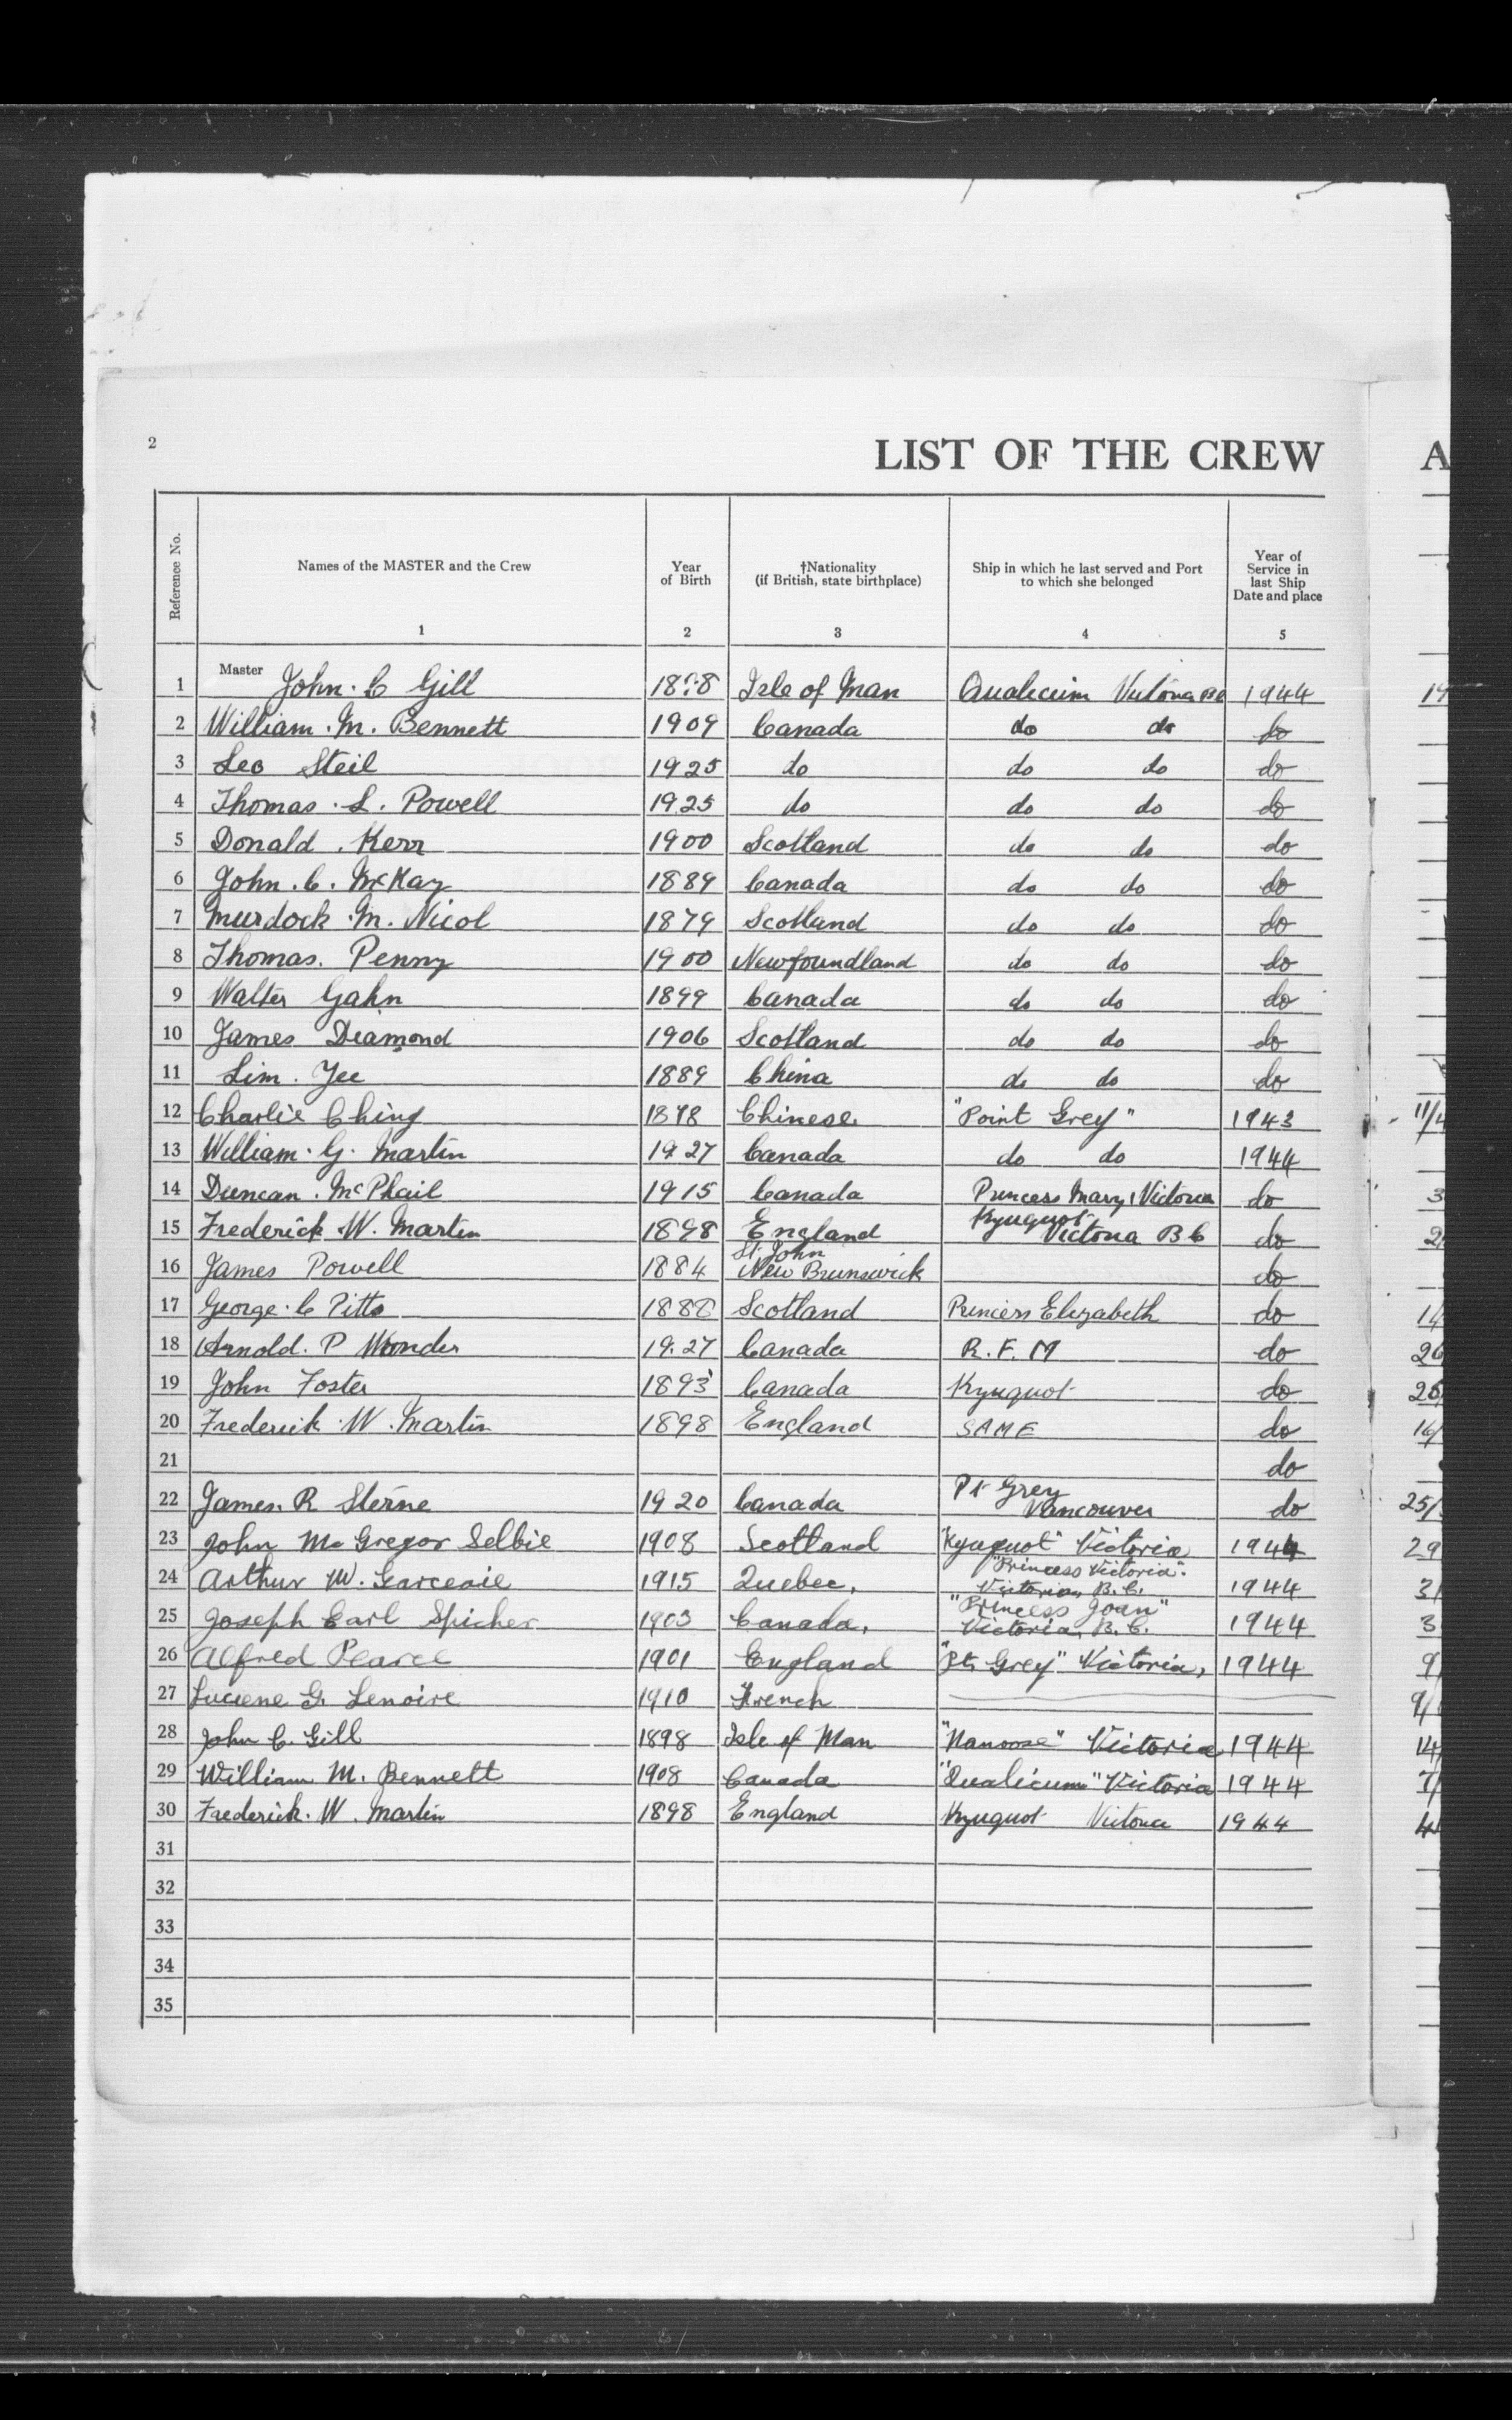 2
LIST OF THE CREW
A
Reference No.
Names of the MASTER and the Crew
Year of Birth
†Nationality (if British, state birthplace)
Ship in which he last served and Port to which she belonged
Year of Service in last Ship Date and place
1 2 3 4 5
1 Master John. C Gill Isle of Man Qualicum Victoria BC 1944
2 William. M. Bennett 1909 Canada do do do
3 Leo Steil 1925 do do do do
4 Thomas. L. Powell 1925 do do do do
5 Donald. Kerr 1900 Scotland do do do
6 John. C. McKay 1889 Canada do do do
7 Murdock. M. Nicol 1879 Scotland do do do
8 Thomas. Penny 1900 Newfoundland do do do
9 Walter Gahn 1899 Canada do do do
10 James Diamond 1906 Scotland do do do
11 Lim. Yee 1889 China do do do
12 Charlie Ching 1878 Chinese. "Point Grey" 1943
13 William. G. Martin 1927 Canada do do 1944
14 Duncan. McPhail 1915 Canada Princess Mary, Victoria do
15 Frederick W. Martin 1898 England Kyuquot Victoria BC do
16 James Powell 1884 St. John New Brunswick do
17 George. C Pitts 1888 Scotland Princess Elizabeth do
18 Arnold. P Wonder 1927 Canada R.F.M do
19 John Foster 1893 Canada Kyuquot do
20 Frederick. W. Martin 1898 England SAME do
21 do
22 James. R Sterne 1920 Canada Pt Grey Vancouver do
23 John McGregor Selbie 1908 Scotland "Kyuquot" Victoria 1944
24 Arthur W. 1915 Quebec, "Princess Victoria". Victoria, B.C. 1944
25 Joseph Earl Spicher 1903 Canada, "Princess Joan" Victoria, B.C. 1944
26 Alfred Pearce 1901 England "Pt. Grey" Victoria, 1944
27 Luciene G. Lenoire 1910 French
28 John C. Gill 1898 Isle of Man "Nanoose" Victoria 1944
29 William M. Bennett 1908 Canada "Qualicum" Victoria 1944
30 Frederick. W. Martin 1898 England Kyuquot Victoria 1944
31
32
33
34
35